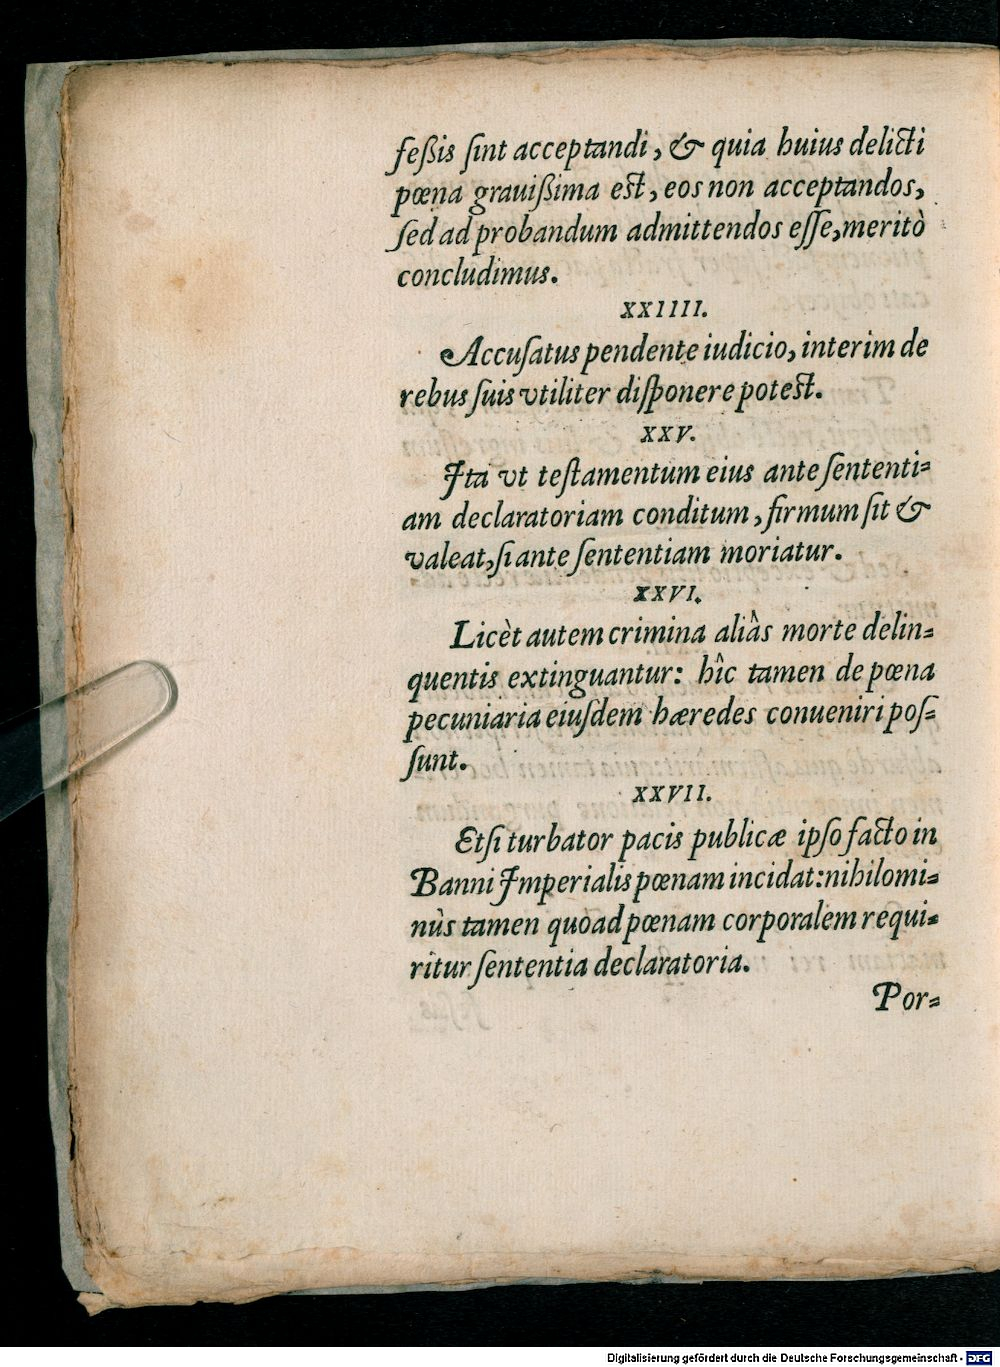 feßis ſint acceptandi, & quia huius delicti
pœna grauißima est, eos non acceptandos,
ſed ad probandum admittendos eſſe, meritò
concludimus.
XXIIII.
Accuſatus pendente iudicio, interim de
rebus ſuis vtiliter diſponere potest.
XXV.
Ita vt teſtamentum eius ante ſententi-
am declaratoriam conditum, firmum ſit &
valeat, ſi ante ſententiam moriatur.
XXVI.
Licèt autem crimina aliâs morte delin-
quentis extinguantur: hîc tamen de pœna
pecuniaria eiuſdem hæredes conueniri poſ-
ſunt.
XXVII.
Etſi turbator pacis publicæ ipſo facto in
Banni Imperialis pœnam incidat: nihilomi-
nùs tamen quoad pœnam corporalem requi-
ritur ſententia declaratoria.
Por-
Digitalisierung gefördert durch die Deutsche Forschungsgemeinschaft - DFG